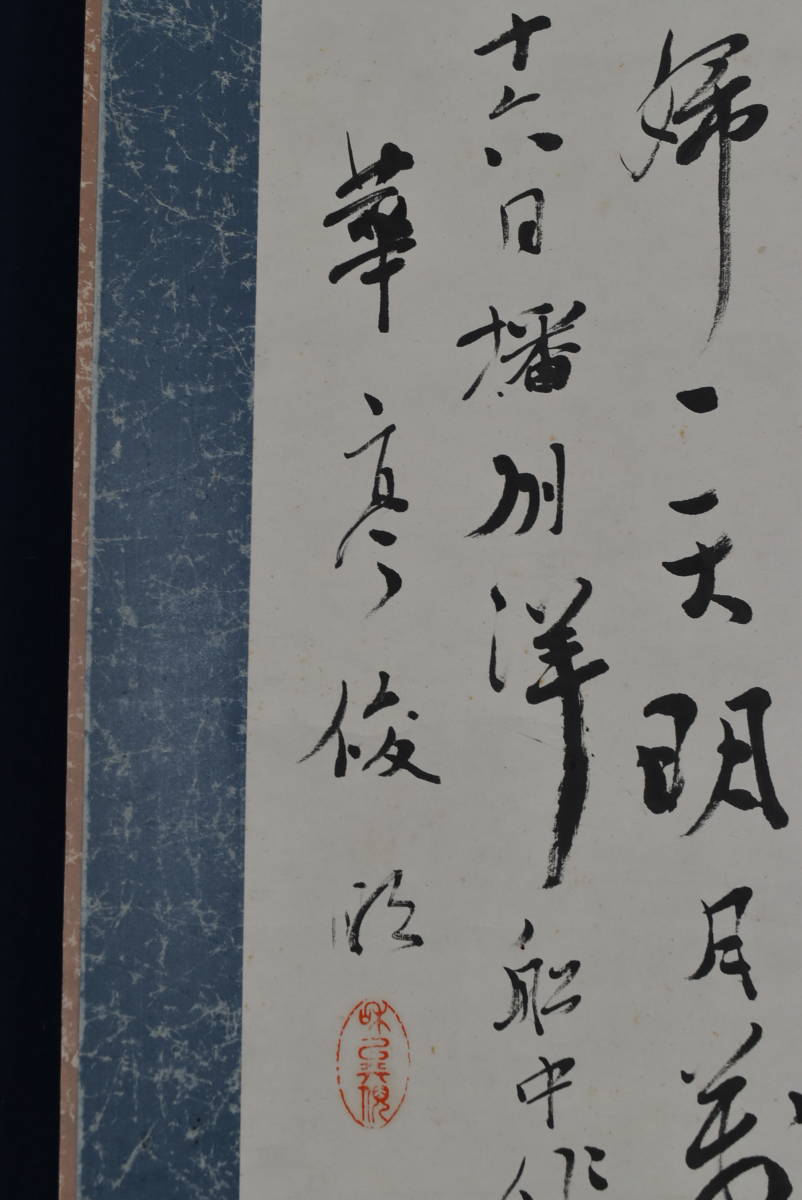 婦一天明月萬
十六日播州洋船中作
華亭俊